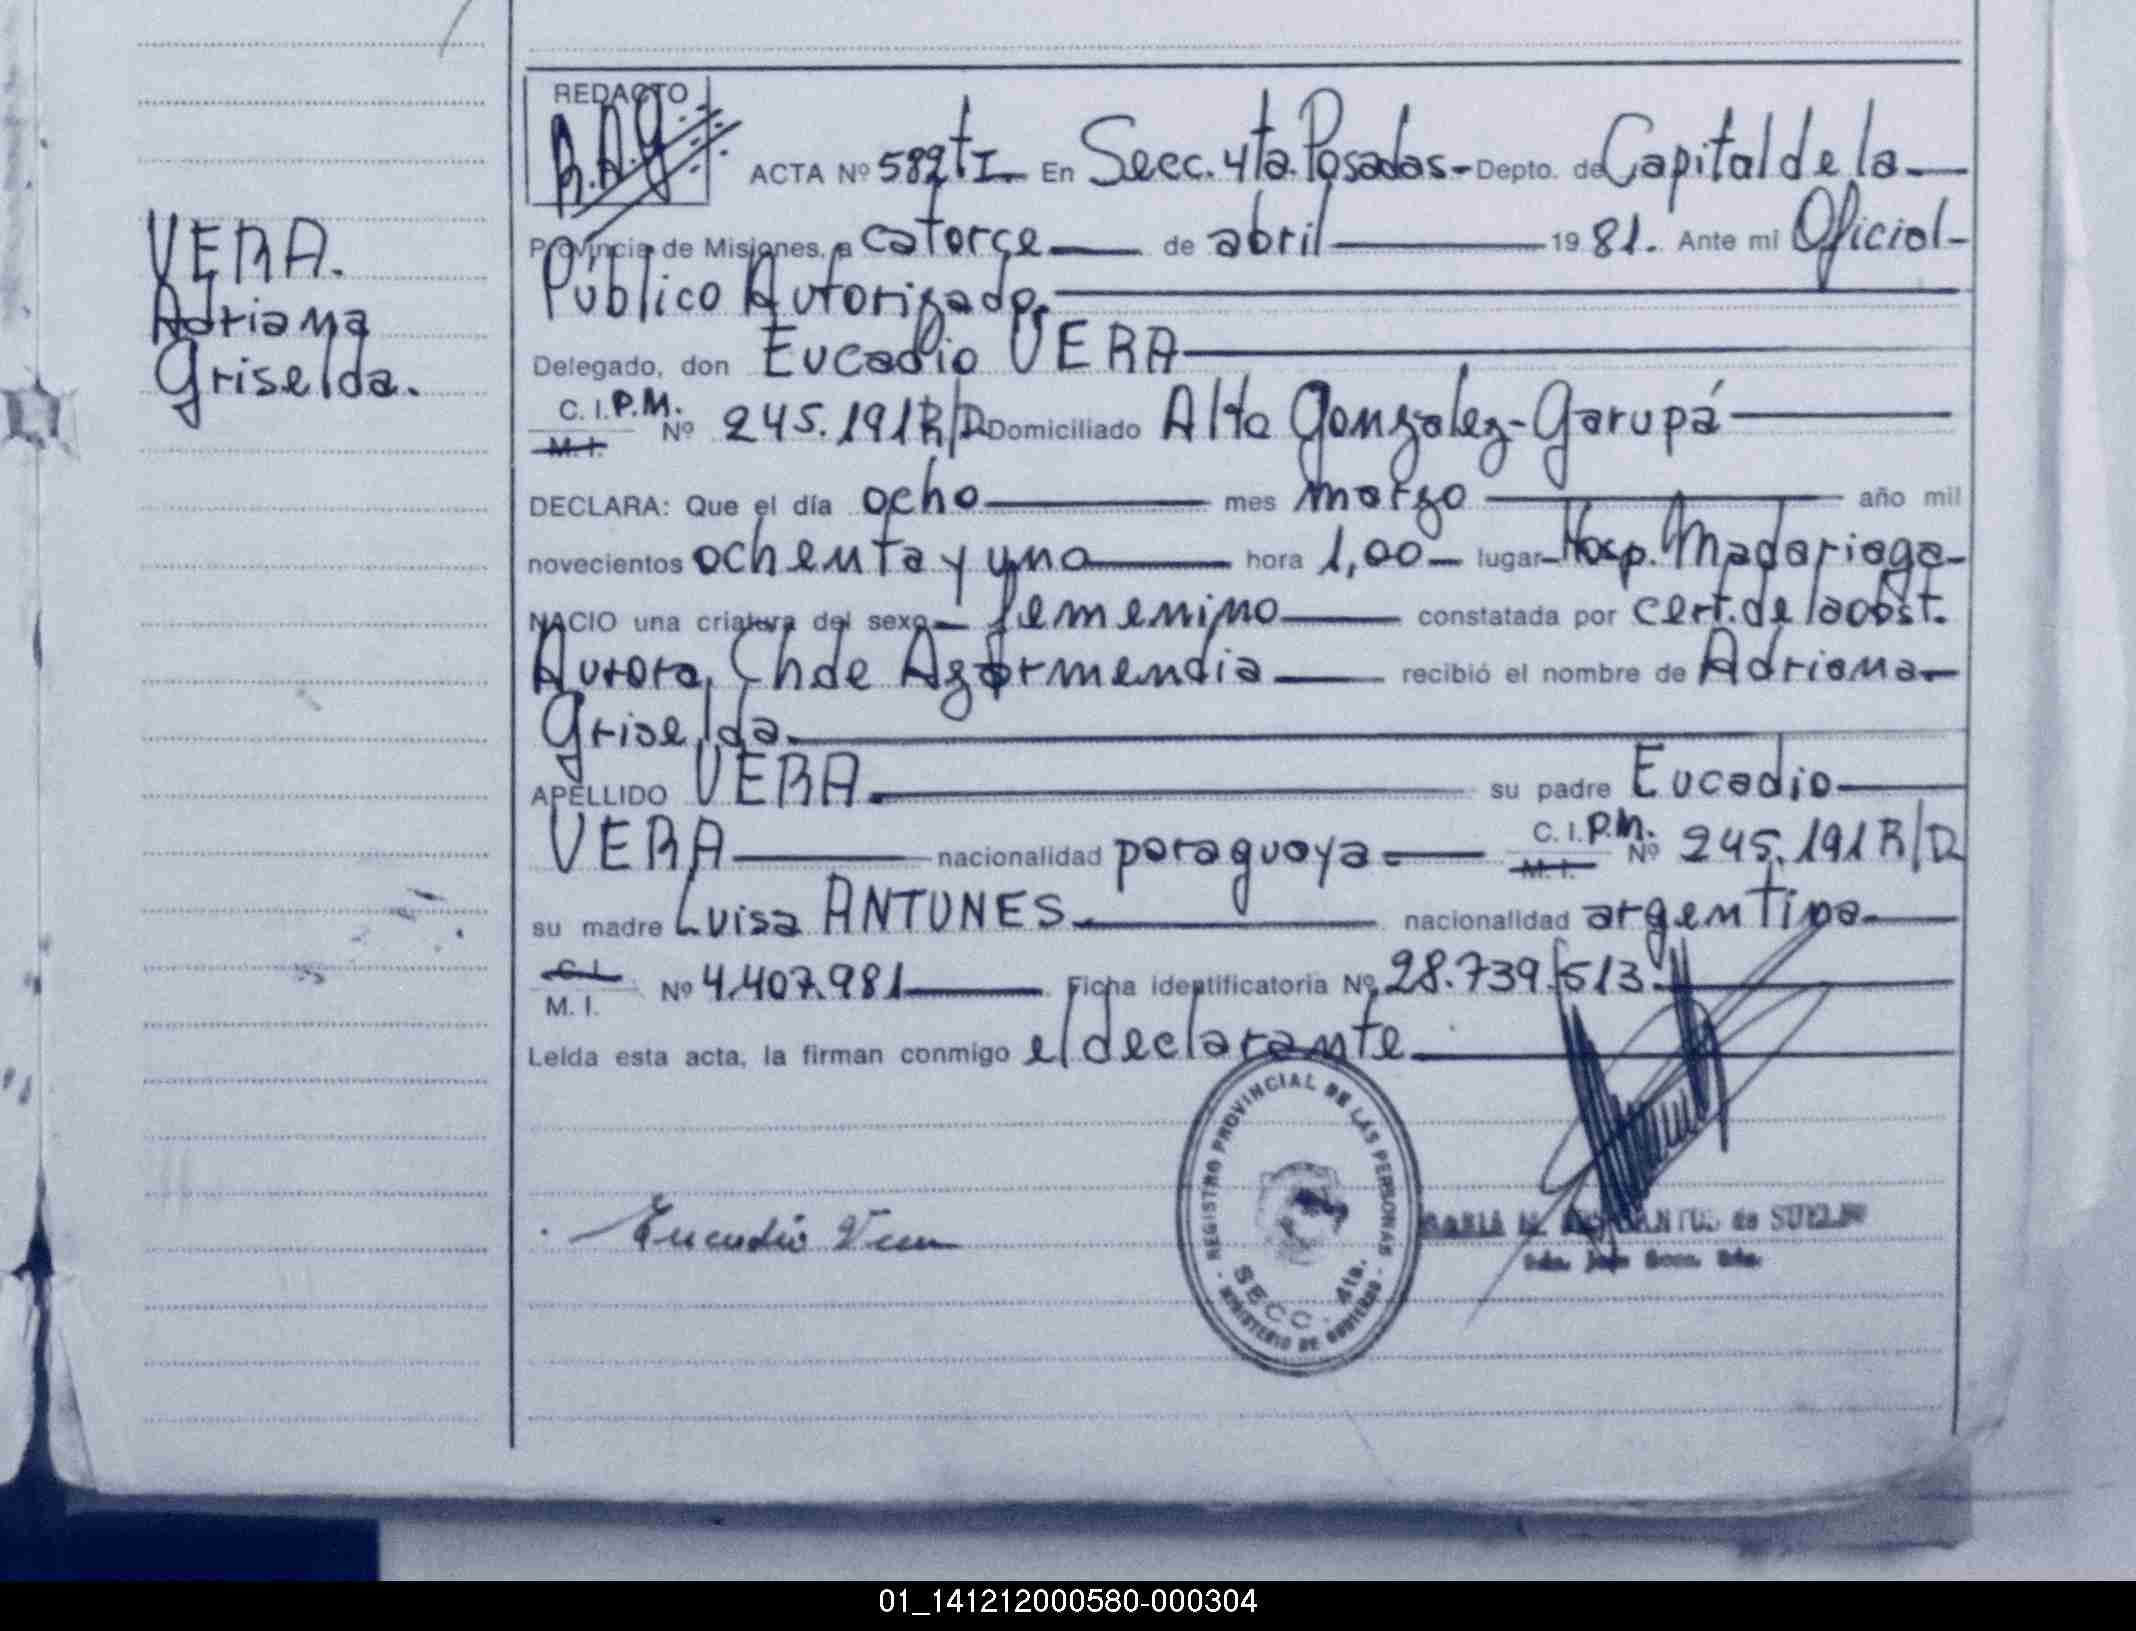 REDACTO
VERA.
Adriana
Griselda.
ACTA Nº 582 tI. En Secc. 4ta. Posadas - Depto. de Capital de la
Provincia de Misiones, a catorce de abril 1981. Ante mi Oficial
Público Autorizado.
Delegado, don Eucadio VERA
C. I. P.M. M. I. Nº 245.191 R/D Domiciliado Alta Gonzalez - Garupá
DECLARA: Que el día ocho mes marzo año mil
novecientos ochenta y uno hora 1,00 lugar Hosp. Madariaga
NACIO una criatura del sexo femenino constatada por cert. de la obst.
Aurora Ch de Azarmendia recibió el nombre de Adriana
Griselda.
APELLIDO VERA su padre Eucadio
VERA nacionalidad paraguaya. C. I. P.M. M. I. Nº 245.191 R/D
su madre Luisa ANTUNES. nacionalidad argentina
C. I. M. I. Nº 4.407.981 Ficha identificatoria Nº 28.739.513.
Leída esta acta, la firman conmigo el declarante
Eucadio Vera
REGISTRO PROVINCIAL DE LAS PERSONAS
SECC. 4ta.
MINISTERIO DE GOBIERNO
MARIA de
01_141212000580-000304